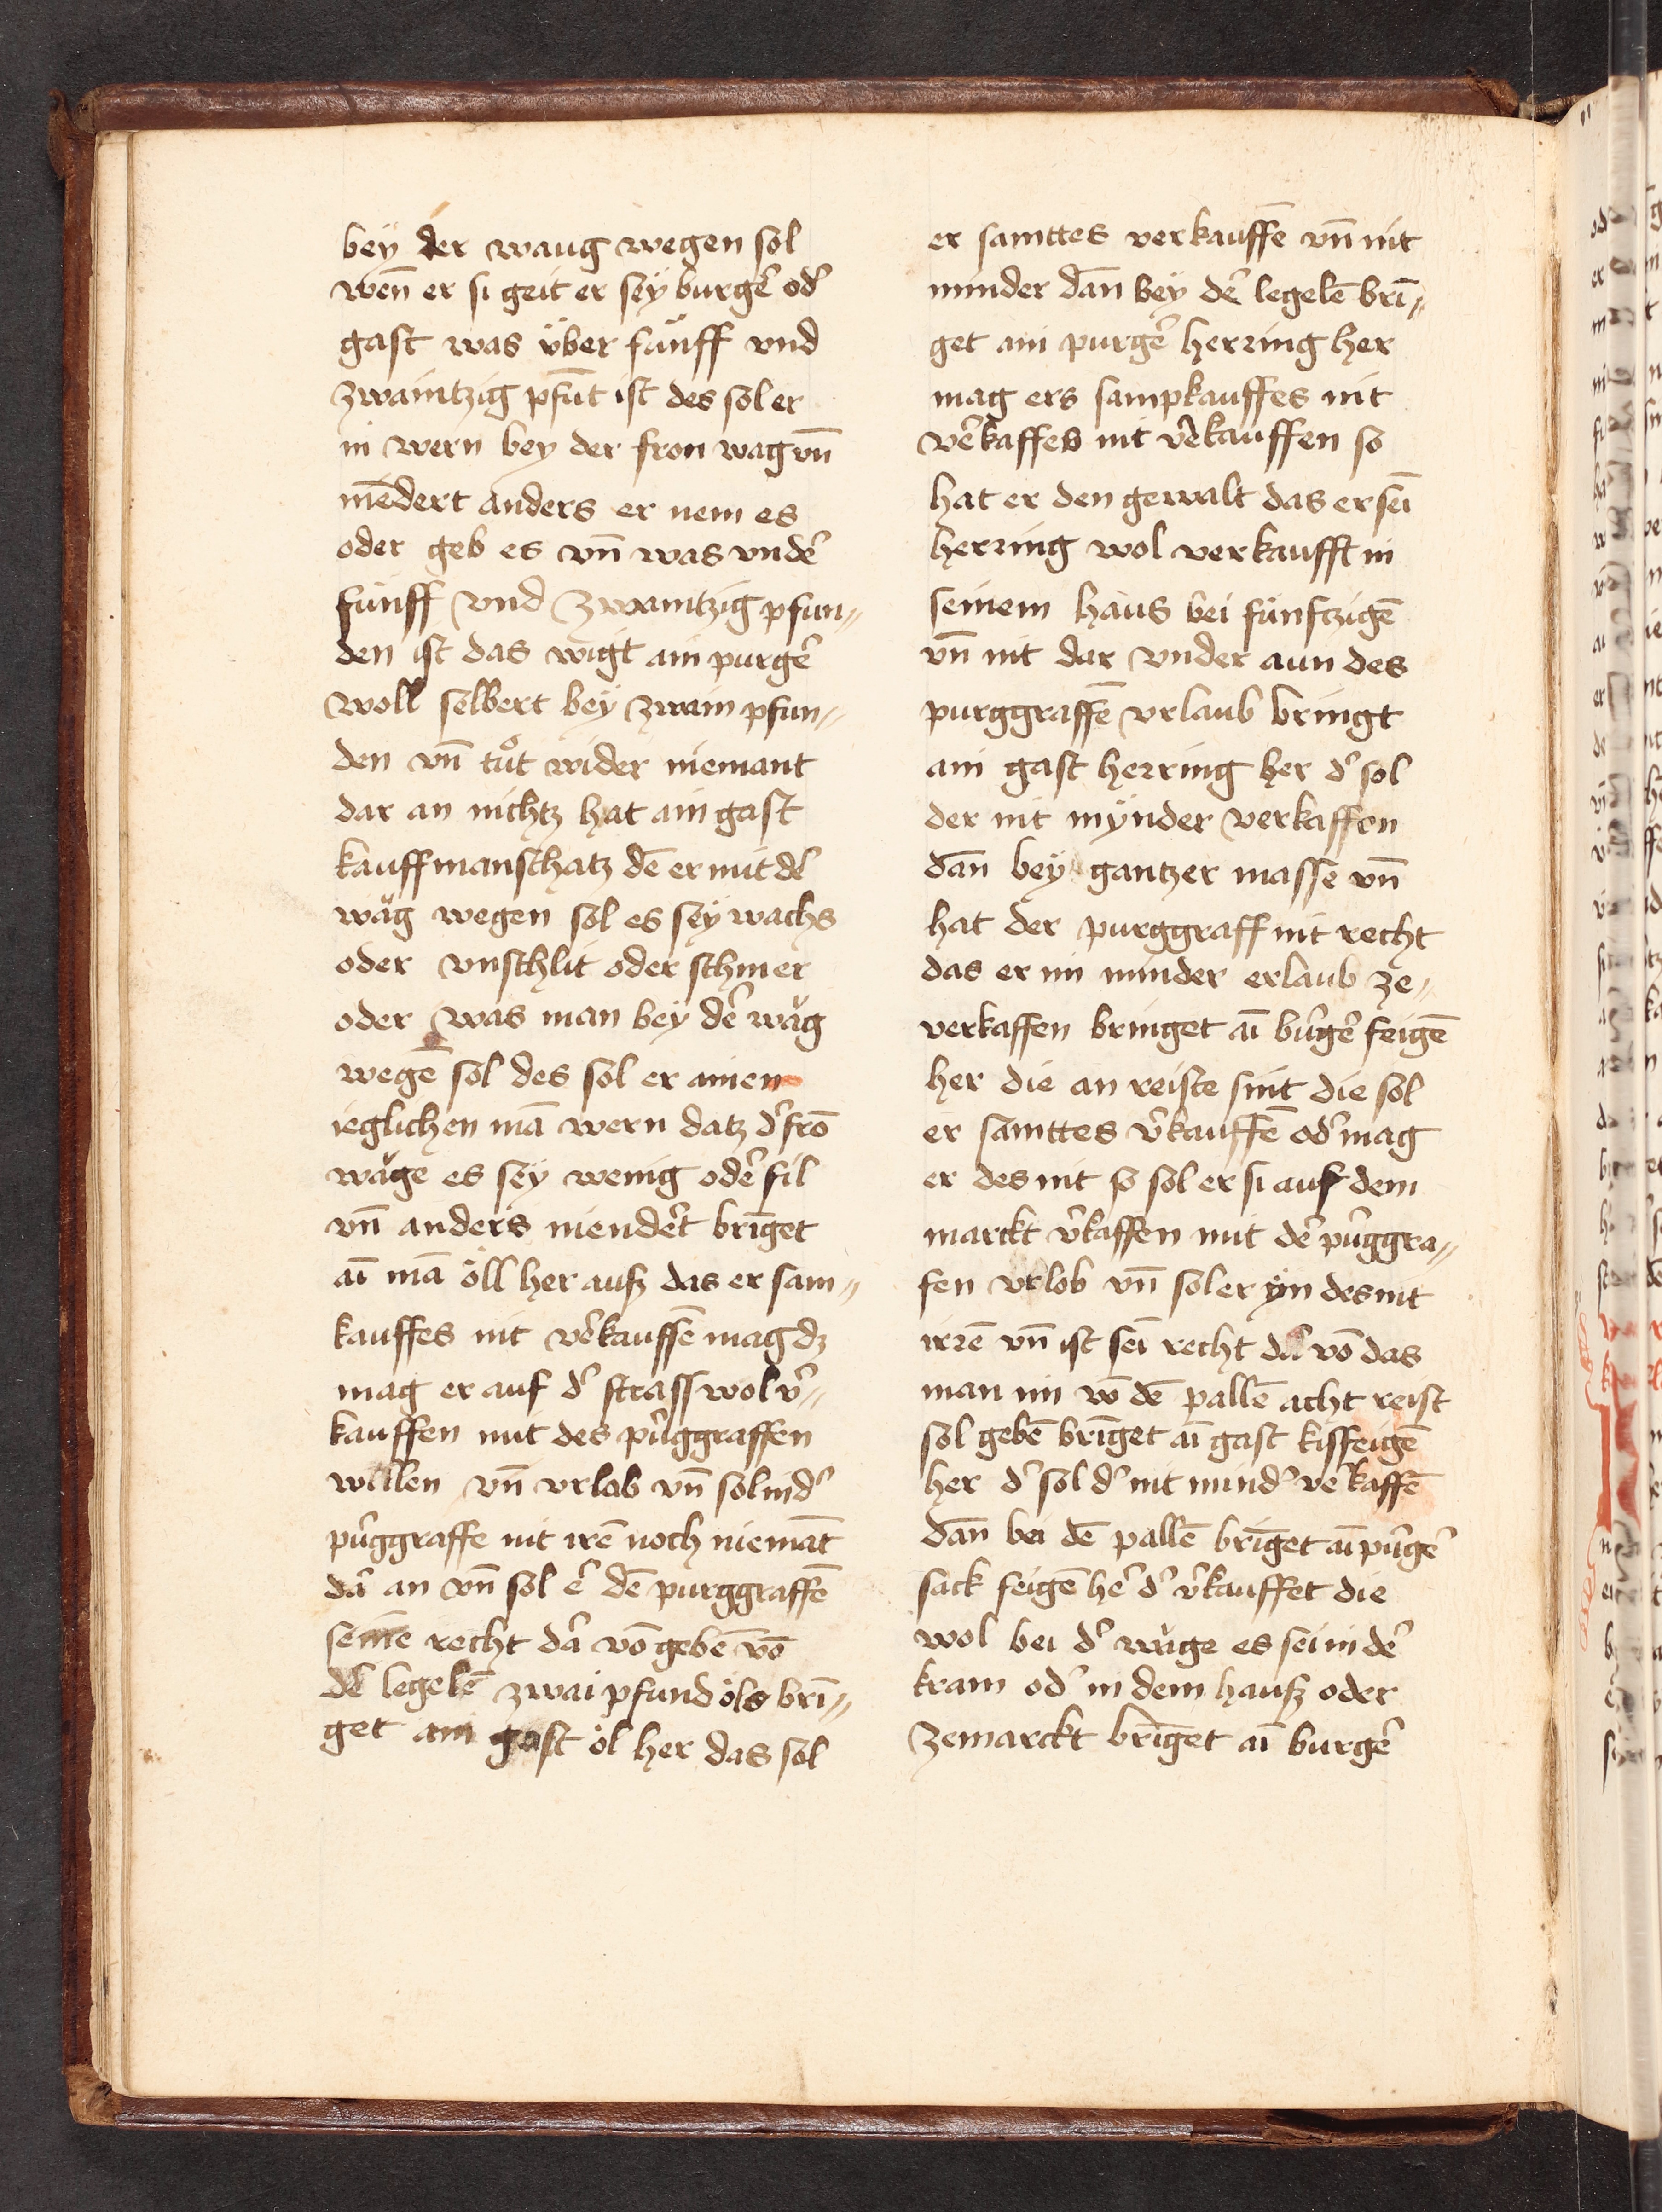 bey der waug wegen sol
wen̄ er si geit er sey burgeꝰ odꝰ
gast was über fünff vnd
zwaintzig pfūt ist des sol er
in wern bey der fron wag vn̄
nīedert anders er nem es
oder geb es vn̄ was vndeꝰ
fünff vnd zwaintzig pfun〃
den ist das wigt ain purgeꝰ
woll selbert bey zwain pfun〃
den vn̄ tuͦt wider niemant
dar an nichtz hat ain gast
kauffmanschatz dē er mit deꝰ
wäg wegen sol es sey wachs
oder vnschlit oder schmer
oder was man bey deꝰ wäg
wegē sol des sol er ainen
ieglichen mā wern datz dꝰ frō
wäge es sey wenig odeꝰ fil
vn̄ anders niendeꝰt brīget
aī mā öll her auß das er sam〃
kauffes nit veꝰkauffē mag dz
mag er auf dꝰ strass wol vꝰ〃
kauffen mit des puꝰggraffen
willen vn̄ vrlob vn̄ sol in dꝰ
puꝰggraffe nit irē noch niemāt
daꝰ an vn̄ sol eꝰ dē purggraffē
seinē recht daꝰ vō gebē vō
deꝰ legelē zwai pfund öls brī〃
get ain gast öl her das sol
er samttes verkauffē vn̄ nit
minder dan̄ bey deꝰ legelē brī〃
get ain purgeꝰ herring her
mag ers sampkauffes nit
veꝰkaffes nit veꝰkauffen so
hat er den gewalt das er seī
herring wol verkaufft in
seinem haus bei fünftzigē
vn̄ nit dar vnder aun des
purggraffē vrlaub bringt
ain gast herring her dꝰ sol
der nit mÿnder verkaffen
dan̄ bey gantzer masse vn̄
hat der purggraff nit recht
das er im minder erlaub ze〃
verkaffen bringet aī buꝰgeꝰ feigē
her die an reiste sint die sol
er samttes vꝰkauffē odꝰ mag
er des nit so sol er si auf dem
marckt vꝰkaffen mit deꝰ puꝰggra〃
fen vrlob vn̄ sol er ÿm des nit
irrē vn̄ ist seī recht daꝰ vō das
man im vō dē pallē acht reist
sol gebē brīget aī gast kisfeigē
her dꝰ sol dꝰ nit mindꝰ veꝰkaffē
dan̄ bei dē pallē brīget aī puꝰgeꝰ
sack feigē heꝰ dꝰ vꝰkauffet die
wol bei dꝰ wäge es sei in deꝰ
kram odꝰ in dem hauß oder
zemarckt brīget aī burgeꝰ